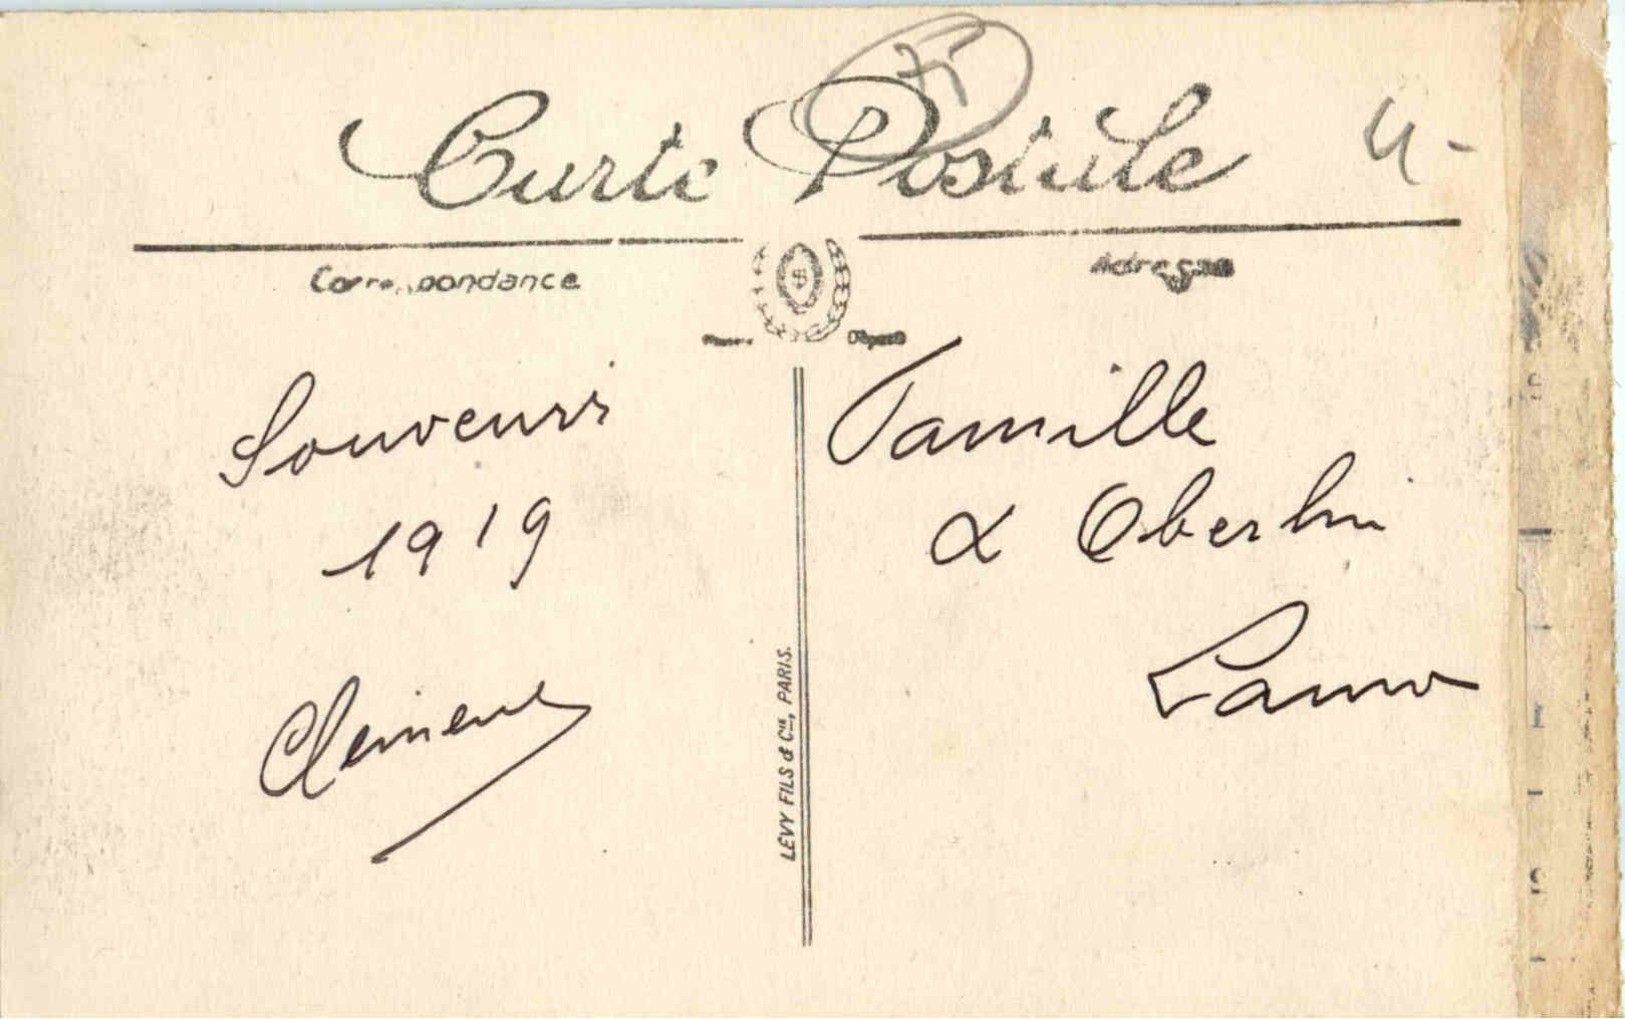 Carte Postale
Correspondance
Adresse
Souvenir
1919
Famille
Oberlin
LEVY FILS & Cie, PARIS.